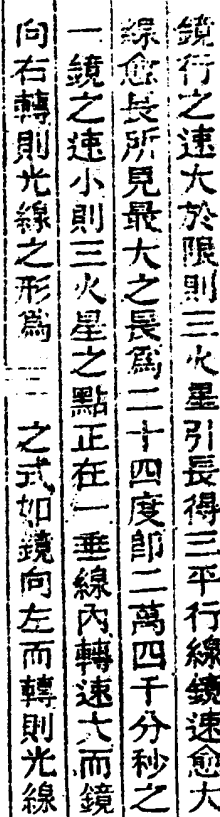 鏡行之速大於限則三火星引長得三平行線鏡速愈大
線愈長所見最大之長爲二十四度卽二萬四千分秒之
一鏡之速小則三火星之點正在一垂線內轉速大而鏡
向右轉則光線之形爲 之式如鏡向左而轉則光線